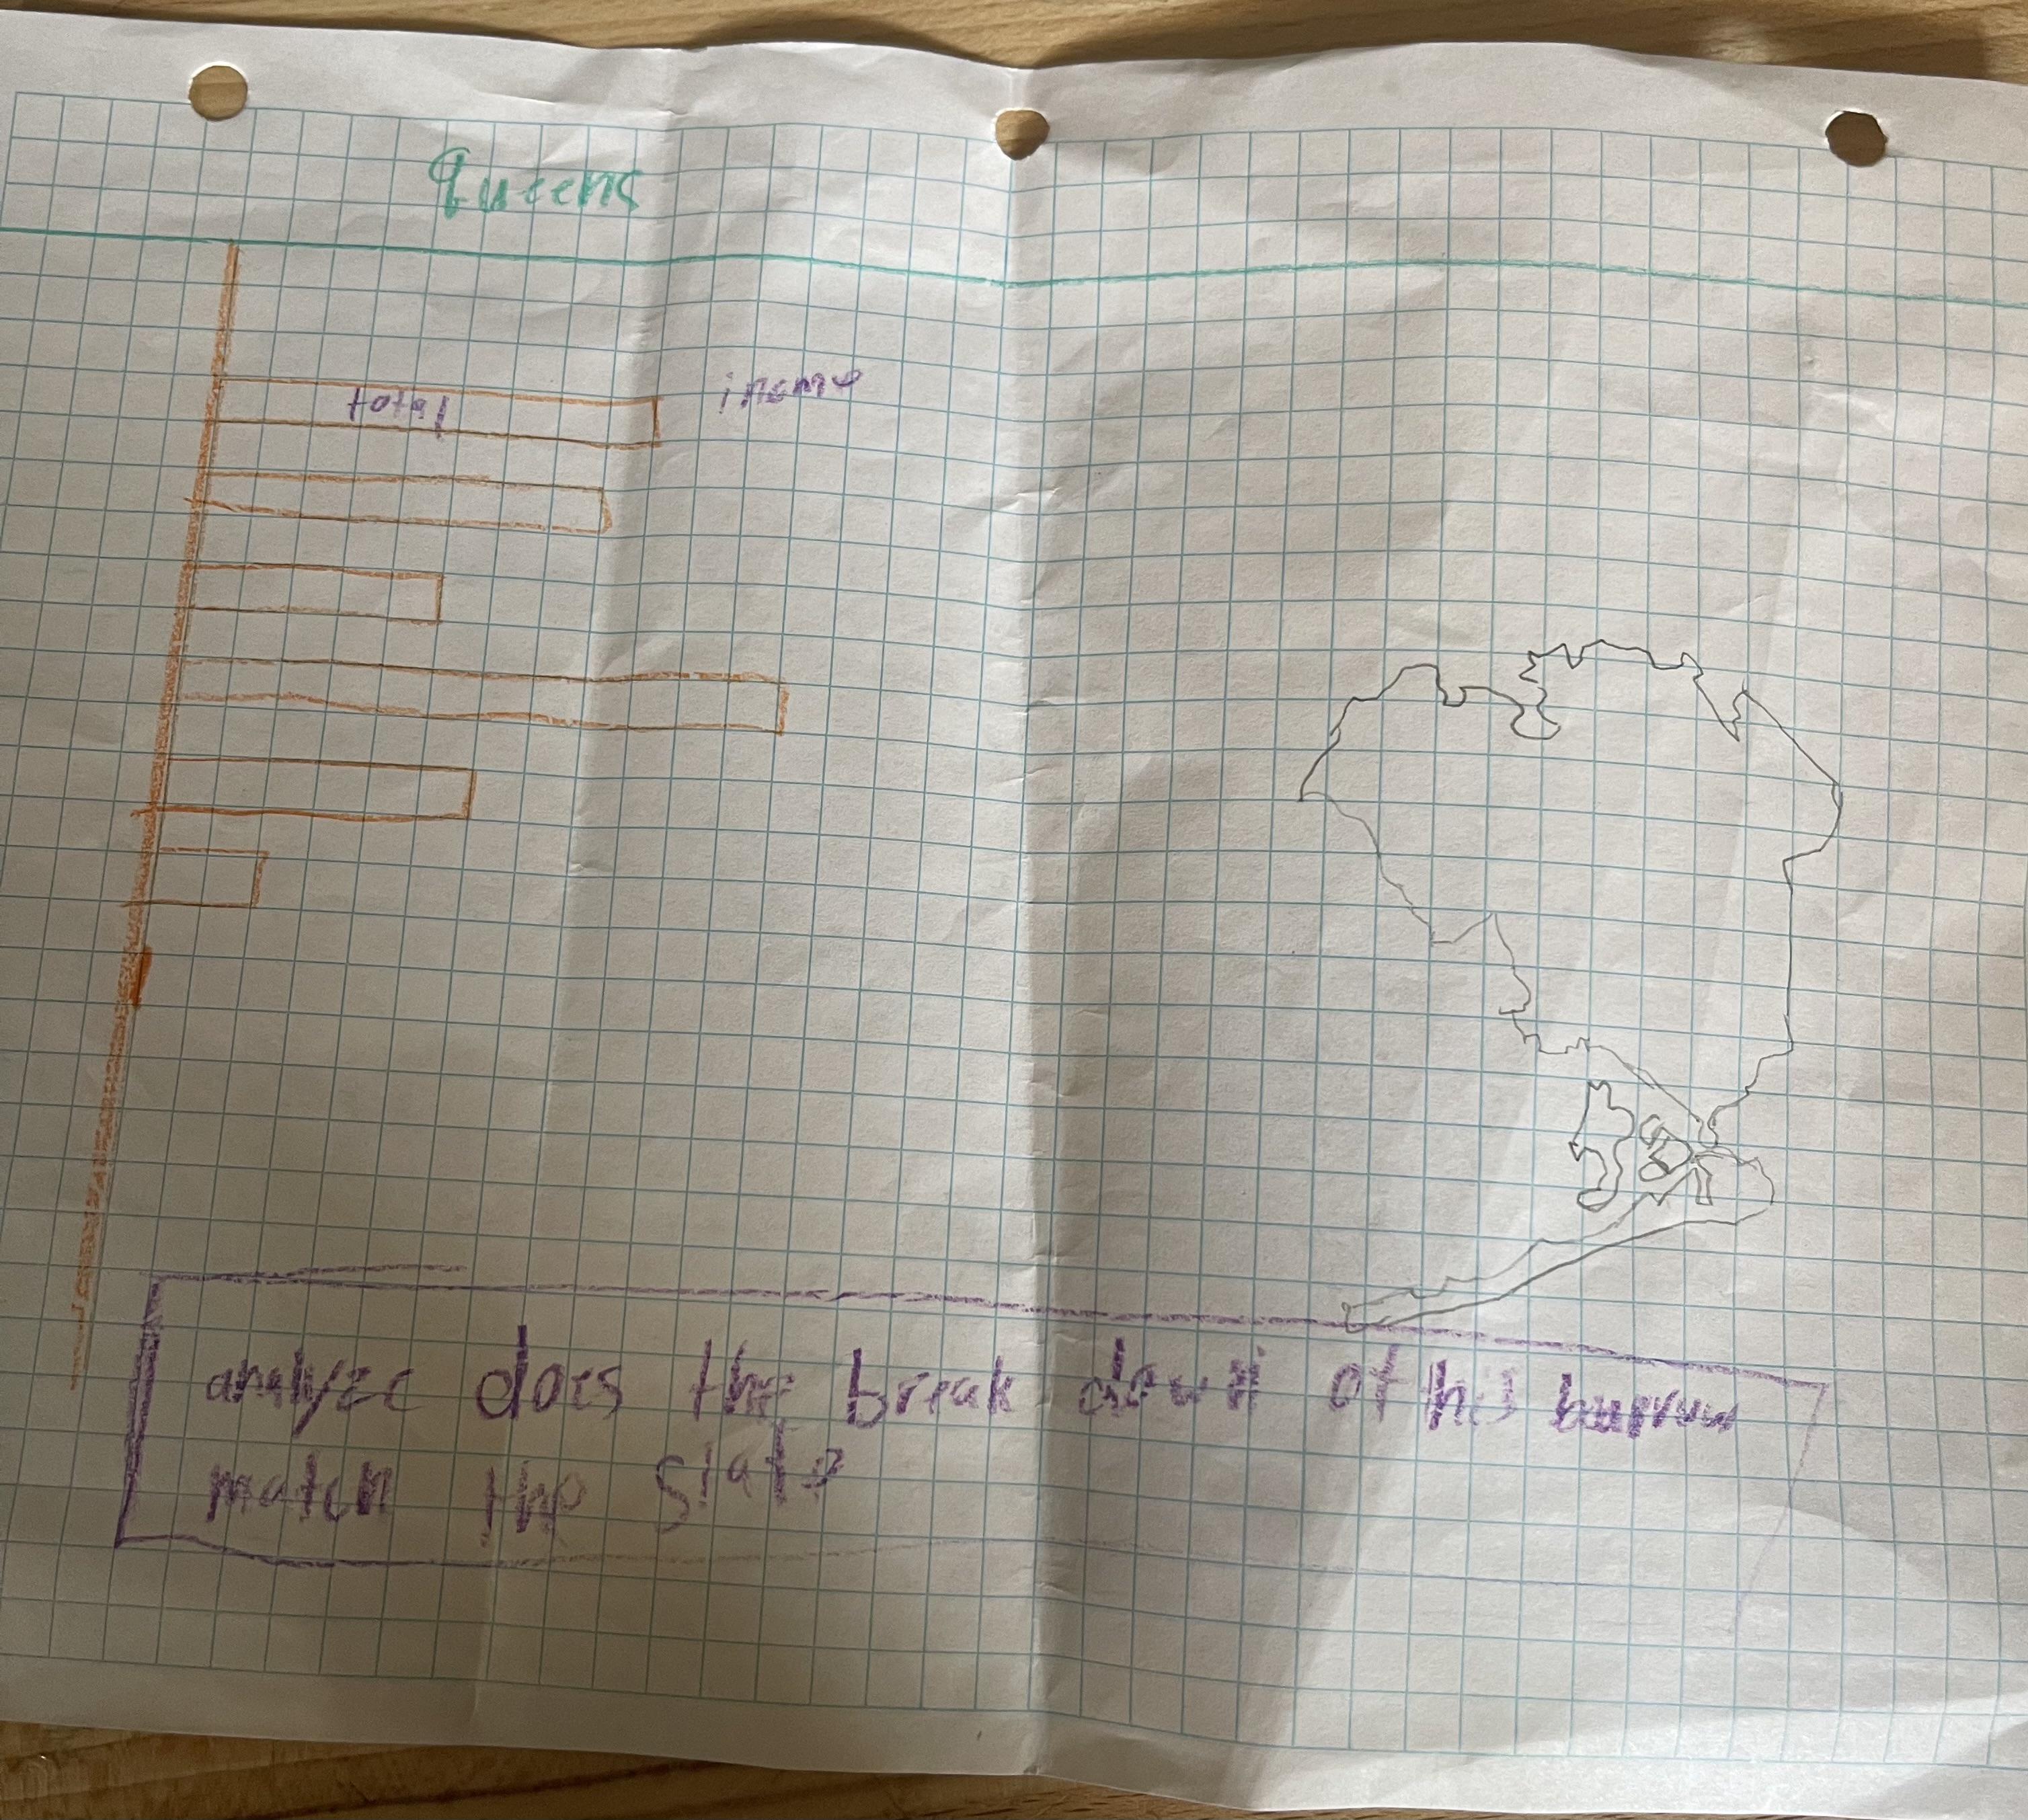 queens
total
income
analyze does the break down of this burrow
match the state